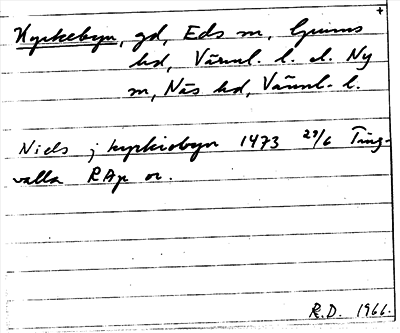 +
Kyrkebyn, gd, Eds sn, Grums
hd, Värml. l. el. Ny
sn, Näs hd, Värml. l.
Niels j kyrkiobyn 1473 29/6 Ting-
valla RAp or.
R.D. 1966.